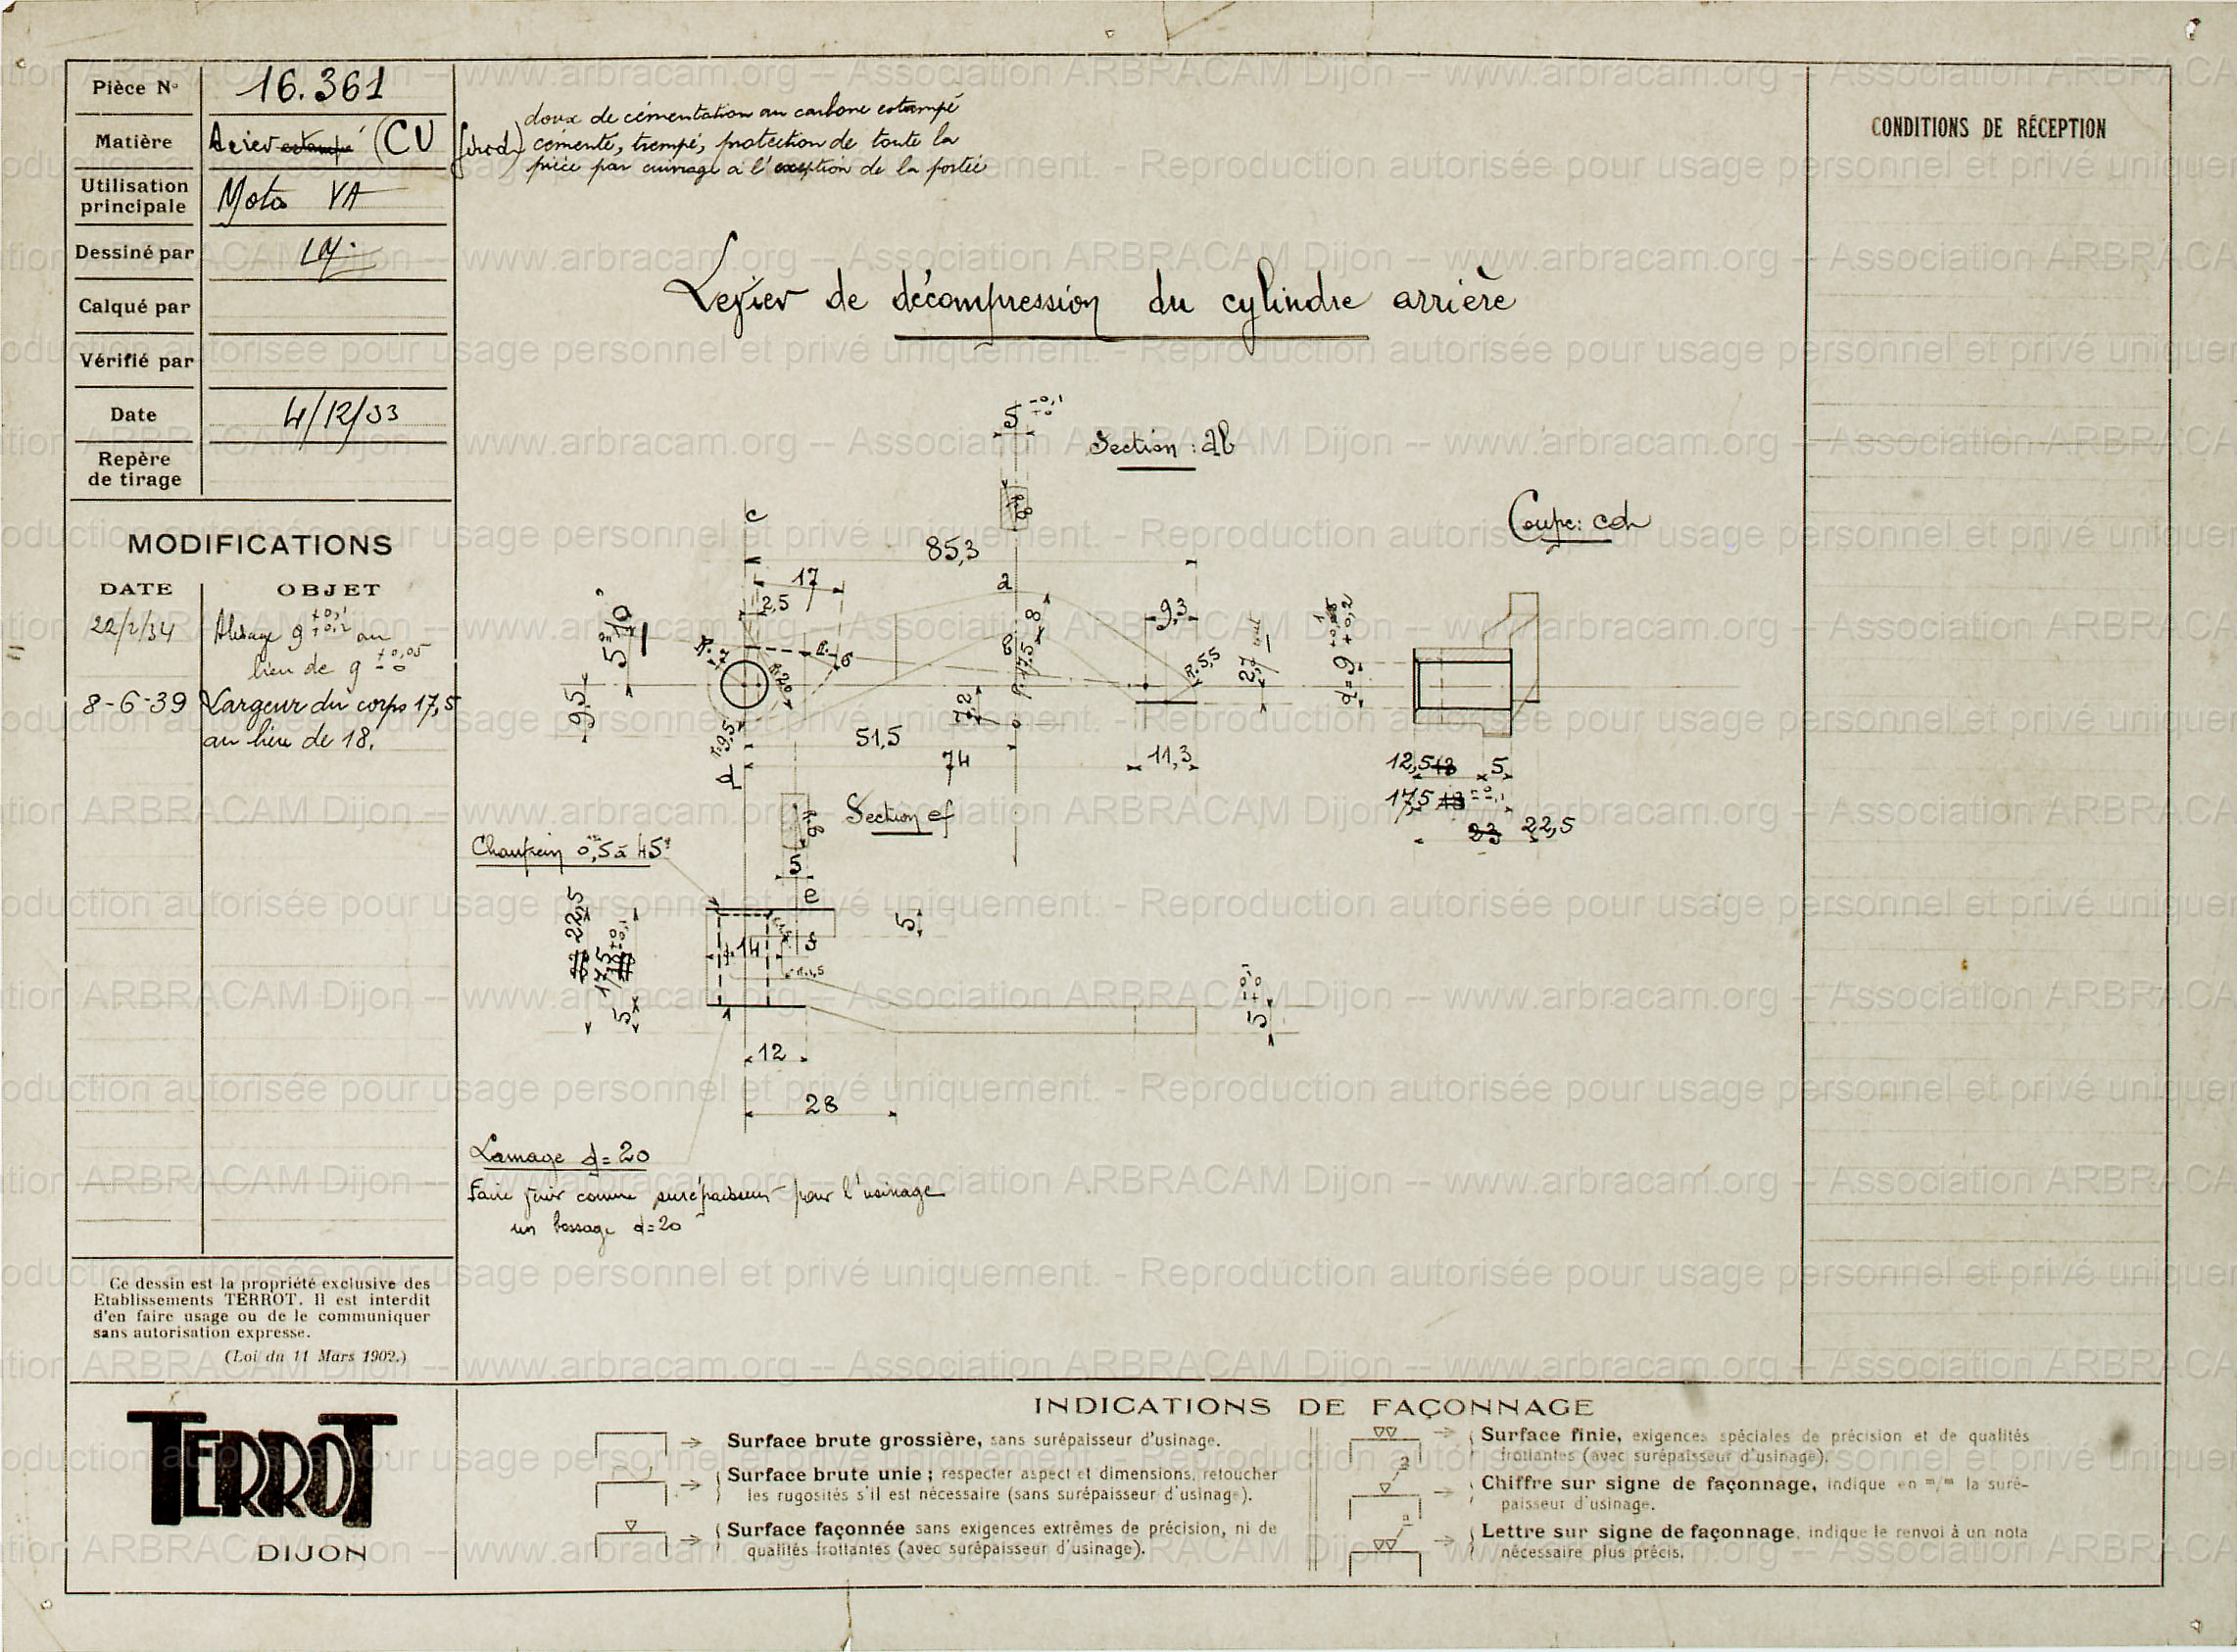 Pièce N° 16.361
Matière Acier estampé (CU
doux de cémentation au carbone estampé
cémenté, trempé, protection de toute la
pièce par cuivrage à l'exception de la portée
Utilisation
principale Moto VA
Dessiné par
Calqué par
Vérifié par
Date 4/12/33
Repère
de tirage
MODIFICATIONS
DATE OBJET
22/2/34 Alésage 9 +0,1 +0,2 au
lieu de 9 +0,05 -0
8-6-39 Largeur du corps 17,5
au lieu de 18.
Ce dessin est la propriété exclusive des
Etablissements TERROT. Il est interdit
d'en faire usage ou de le communiquer
sans autorisation expresse.
(Loi du 11 Mars 1902.)
TERROT
DIJON
CONDITIONS DE RÉCEPTION
Levier de décompression du cylindre arrière
5 -0,1 +0
Section : ab
Coupe: cd
c
85,3
17
2,5
a
8
9,3
b
R.5,5
9,5
R.9,5
7,2
51,5
74
11,3
d
d=9 +0,2
12,5 18 5
17,5 18
23 22,5
Section ef
Chanfrein 0,5 à 45°
5
e
f
14
R.1,5
22,5
17,5
5
5
5
12
28
Lamage d=20
Faire venir comme surépaisseur pour l'usinage
un bossage d=20
INDICATIONS DE FAÇONNAGE
Surface brute grossière, sans surépaisseur d'usinage.
Surface brute unie ; respecter aspect et dimensions, retoucher
les rugosités s'il est nécessaire (sans surépaisseur d'usinage).
Surface façonnée sans exigences extrêmes de précision, ni de
qualités frottantes (avec surépaisseur d'usinage).
Surface finie, exigences spéciales de précision et de qualités
frottantes (avec surépaisseur d'usinage).
Chiffre sur signe de façonnage, indique en m/m la suré-
paisseur d'usinage.
Lettre sur signe de façonnage, indique le renvoi à un nota
nécessaire plus précis.
Association ARBRACAM Dijon -- www.arbracam.org -- Association ARBRACAM Dijon -- www.arbracam.org
Reproduction autorisée pour usage personnel et privé uniquement. - Reproduction autorisée pour usage personnel et privé uniquement.